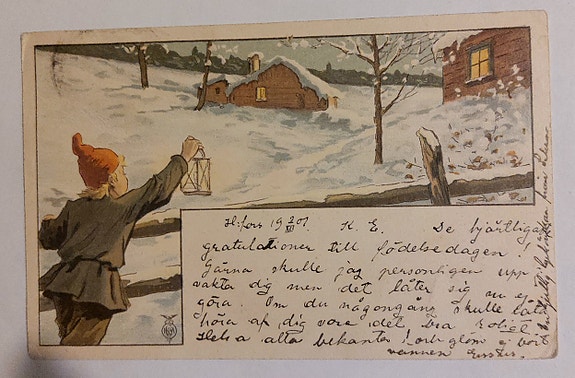 H:fors 19 2/VI 01. K. E. De hjärtligaste
gratulationer till födelsedagen!
Gärna skulle jag personligen upp
vakta dig men det låter sig nu ej
göra. Om du någongång skulle låta
höra af dig vore det bra roligt.
Helsa alla bekanta! och glöm ej bort
vännen